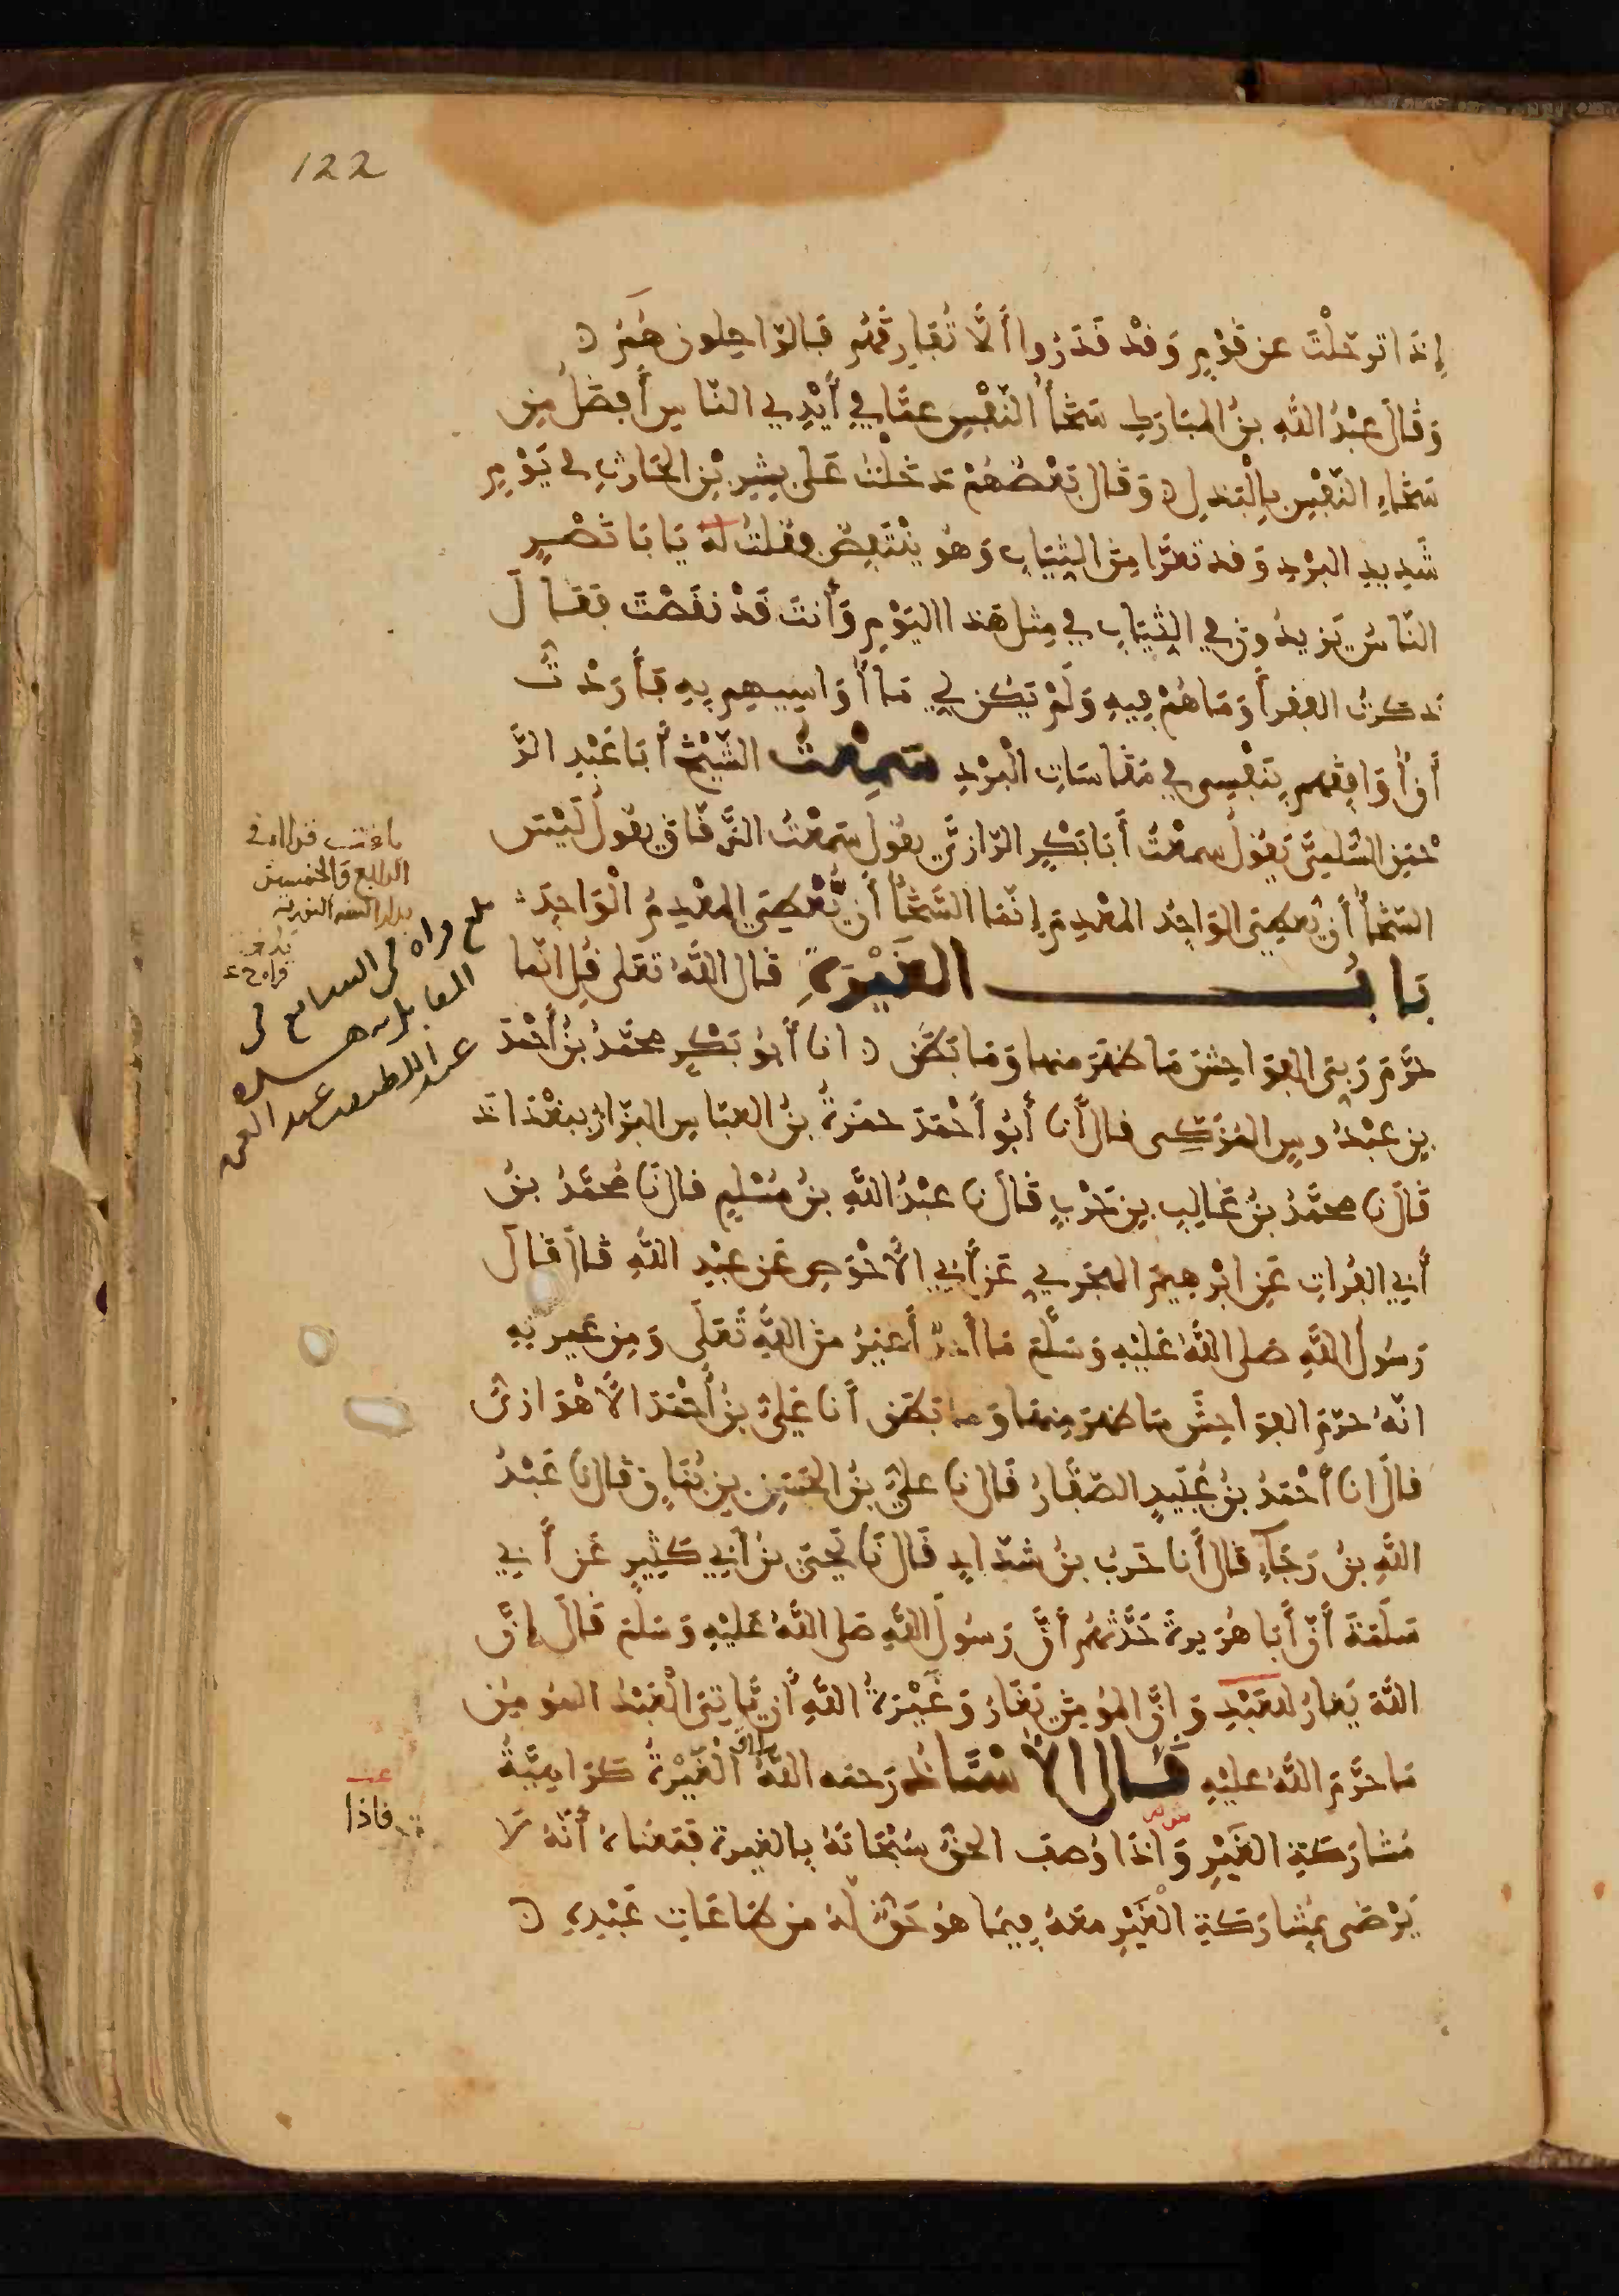 122
إِذَا تَرَحَّلْتَ عَن قَوْمٍ وَقَدْ قَدَرُوا أَلَّا تُفَارِقَهُم فَالرَّاحِلُونَ هُمُ
وَقَالَ عَبْدُ اللَّهِ بنُ المبَارَكِ سَخَأُ النَّفْسِ عَمَّا فِي أَيْدِي النَّاسِ أَفضَلُ مِن
سَخَاءِ النَّفْسِ بِالْبَذلِ وَقَالَ بَعْضُهُمْ دَخَلْتُ عَلَى بِشْرِ بْنِ الحَارِثِ في يَوْمٍ
شَدِيدِ البَرْدِ وَقَد تَعَرَّا مِنَ الثِّيَابِ وَهُوَ يَنْتَفِضُ فقُلتُ لَهُ يَا بَا نَصْرٍ
النَّاسُ يَزِيدُونَ فِي الثِّيَابِ فِي مِثلِ هَذَا اليَوْمِ وَأَنتَ قَدْ نَقَصْتَ فَقَالَ
ذَكَرْتُ الفُقَرَأَ وَمَا هُمْ فِيهِ وَلَمْ يَكُن لِي مَا أُوَاسِيهِم بِهِ فَأَرَدْتُ
أَنْ أُوَافِقَهُم بِنَفْسِي فِي مُقَاسَاتِ الْبَرْدِ سَمِعْتُ الشَّيْخَ أَبَا عَبْدِ الرَّ
حْمَنِ السُّلَمِيَّ يَقُولُ سمِعْتُ أَبَا بَكْرٍ الرَّازِيَّ يقُولُ سَمِعْتُ الدَّقَّاقَ يقُولُ لَيْسَ
السَّخَأُ أَنْ يُعطِيَ الوَاجِدُ المعْدِمَ إِنَّمَا السَّخَأُ أَن يُّعْطِيَ المعْدِمُ الْوَاجِدَ
بَابُ الغَيْرَةِ قَالَ اللَّهُ تَعَلَى قُلِ انَّمَا
حَرَّمَ رَبِّيَ الفَوَاحِشَ مَا ظهَرَ مِنهَا وَمَا بَطَنَ انا أَبُو بَكْرٍ محمَّدُ بنُ أَحْمَدَ
بنِ عَبْدُوسٍ المُزَكِّي قالَ أَنا أَبُو أَحْمَدَ حمزَةُ بنُ العبَّاسِ البزَّازُ بِبَغْدَاذَ
قَالَ نا محمَّدُ بنُ غَالِبِ بنِ حَرْبٍ قَالَ نا عَبْدُ اللَّهِ بنُ مُسْلِمٍ قالَ نَا مُحَمَّدُ بنُ
أَبِي الفُرَاتِ عَنِ ابْرهِيمَ الهجَرِي عَن أَبِي الأَحْوَصِ عَن عَبْدِ اللَّهِ قَالَ قَالَ
رَسُولُ اللَّهِ صَلى اللَّهُ عَلَيْهِ وَسَلَّمَ مَا أحَدٌ أَغيَرُ منَ اللَّهِ تَعَلَى وَمِن غَيرتِهِ
انَّهُ حَرَّمَ الفوَاحِشَ مَا ظهَرَ مِنهَا وَمَا بَطَنَ أَنا عَلِيُّ بنُ أَحْمَدَ الأَهْوَازِيُّ
قالَ انا أَحْمَدُ بنُ عُبَيدٍ الصَّفَّارُ قَالَ نا عليُّ بنُ الحَسَنِ بنِ بُنَانٍ قَالَ نا عَبْدُ
اللَّهِ بنُ رَجَاءٍ قَالَ أَنا حَربُ بنُ شدَّادٍ قَالَ نَا يَحْيَى بنُ أَبِي كَثِيرٍ عَن أَبِي
سَلَمَةَ أَنَّ أَبَا هُرَيرةَ حَدَّثَهُم أَنَّ رَسُولَ اللَّهِ صَلى اللَّهُ عَلَيْهِ وَسَلَّمَ قَالَ إِنَّ
اللَّهَ يَغَارُ للعَبْدِ وَإِنَّ المؤمِنَ يَغَارُ وَغَيْرَةُ اللَّهِ أَن يَّاتِيَ الْعَبْدُ المؤمِنُ
مَا حَرَّمَ اللَّهُ عَليْهِ قَالَ الأُسْتَاذُ رَحمَه اللَّهُ الْغَيْرَةُ كَرَاهِيَّةُ
مُشَارَكَةِ الغَيْرِ وَاذَا وُصفَ الحقُّ سُبْحَانَهُ بِالغَيرة فَمَعْنَاهُ أَنَّهُ لَا
يَرْضَى بمُشَارَكَةِ الْغَيْرِ مَعَهُ فِيمَا هُوَ حَقٌّ لَهُ من طَاعَاتِ عَبْدِهِ
الرابع والخمسين
عبد اللطيف
فاذا